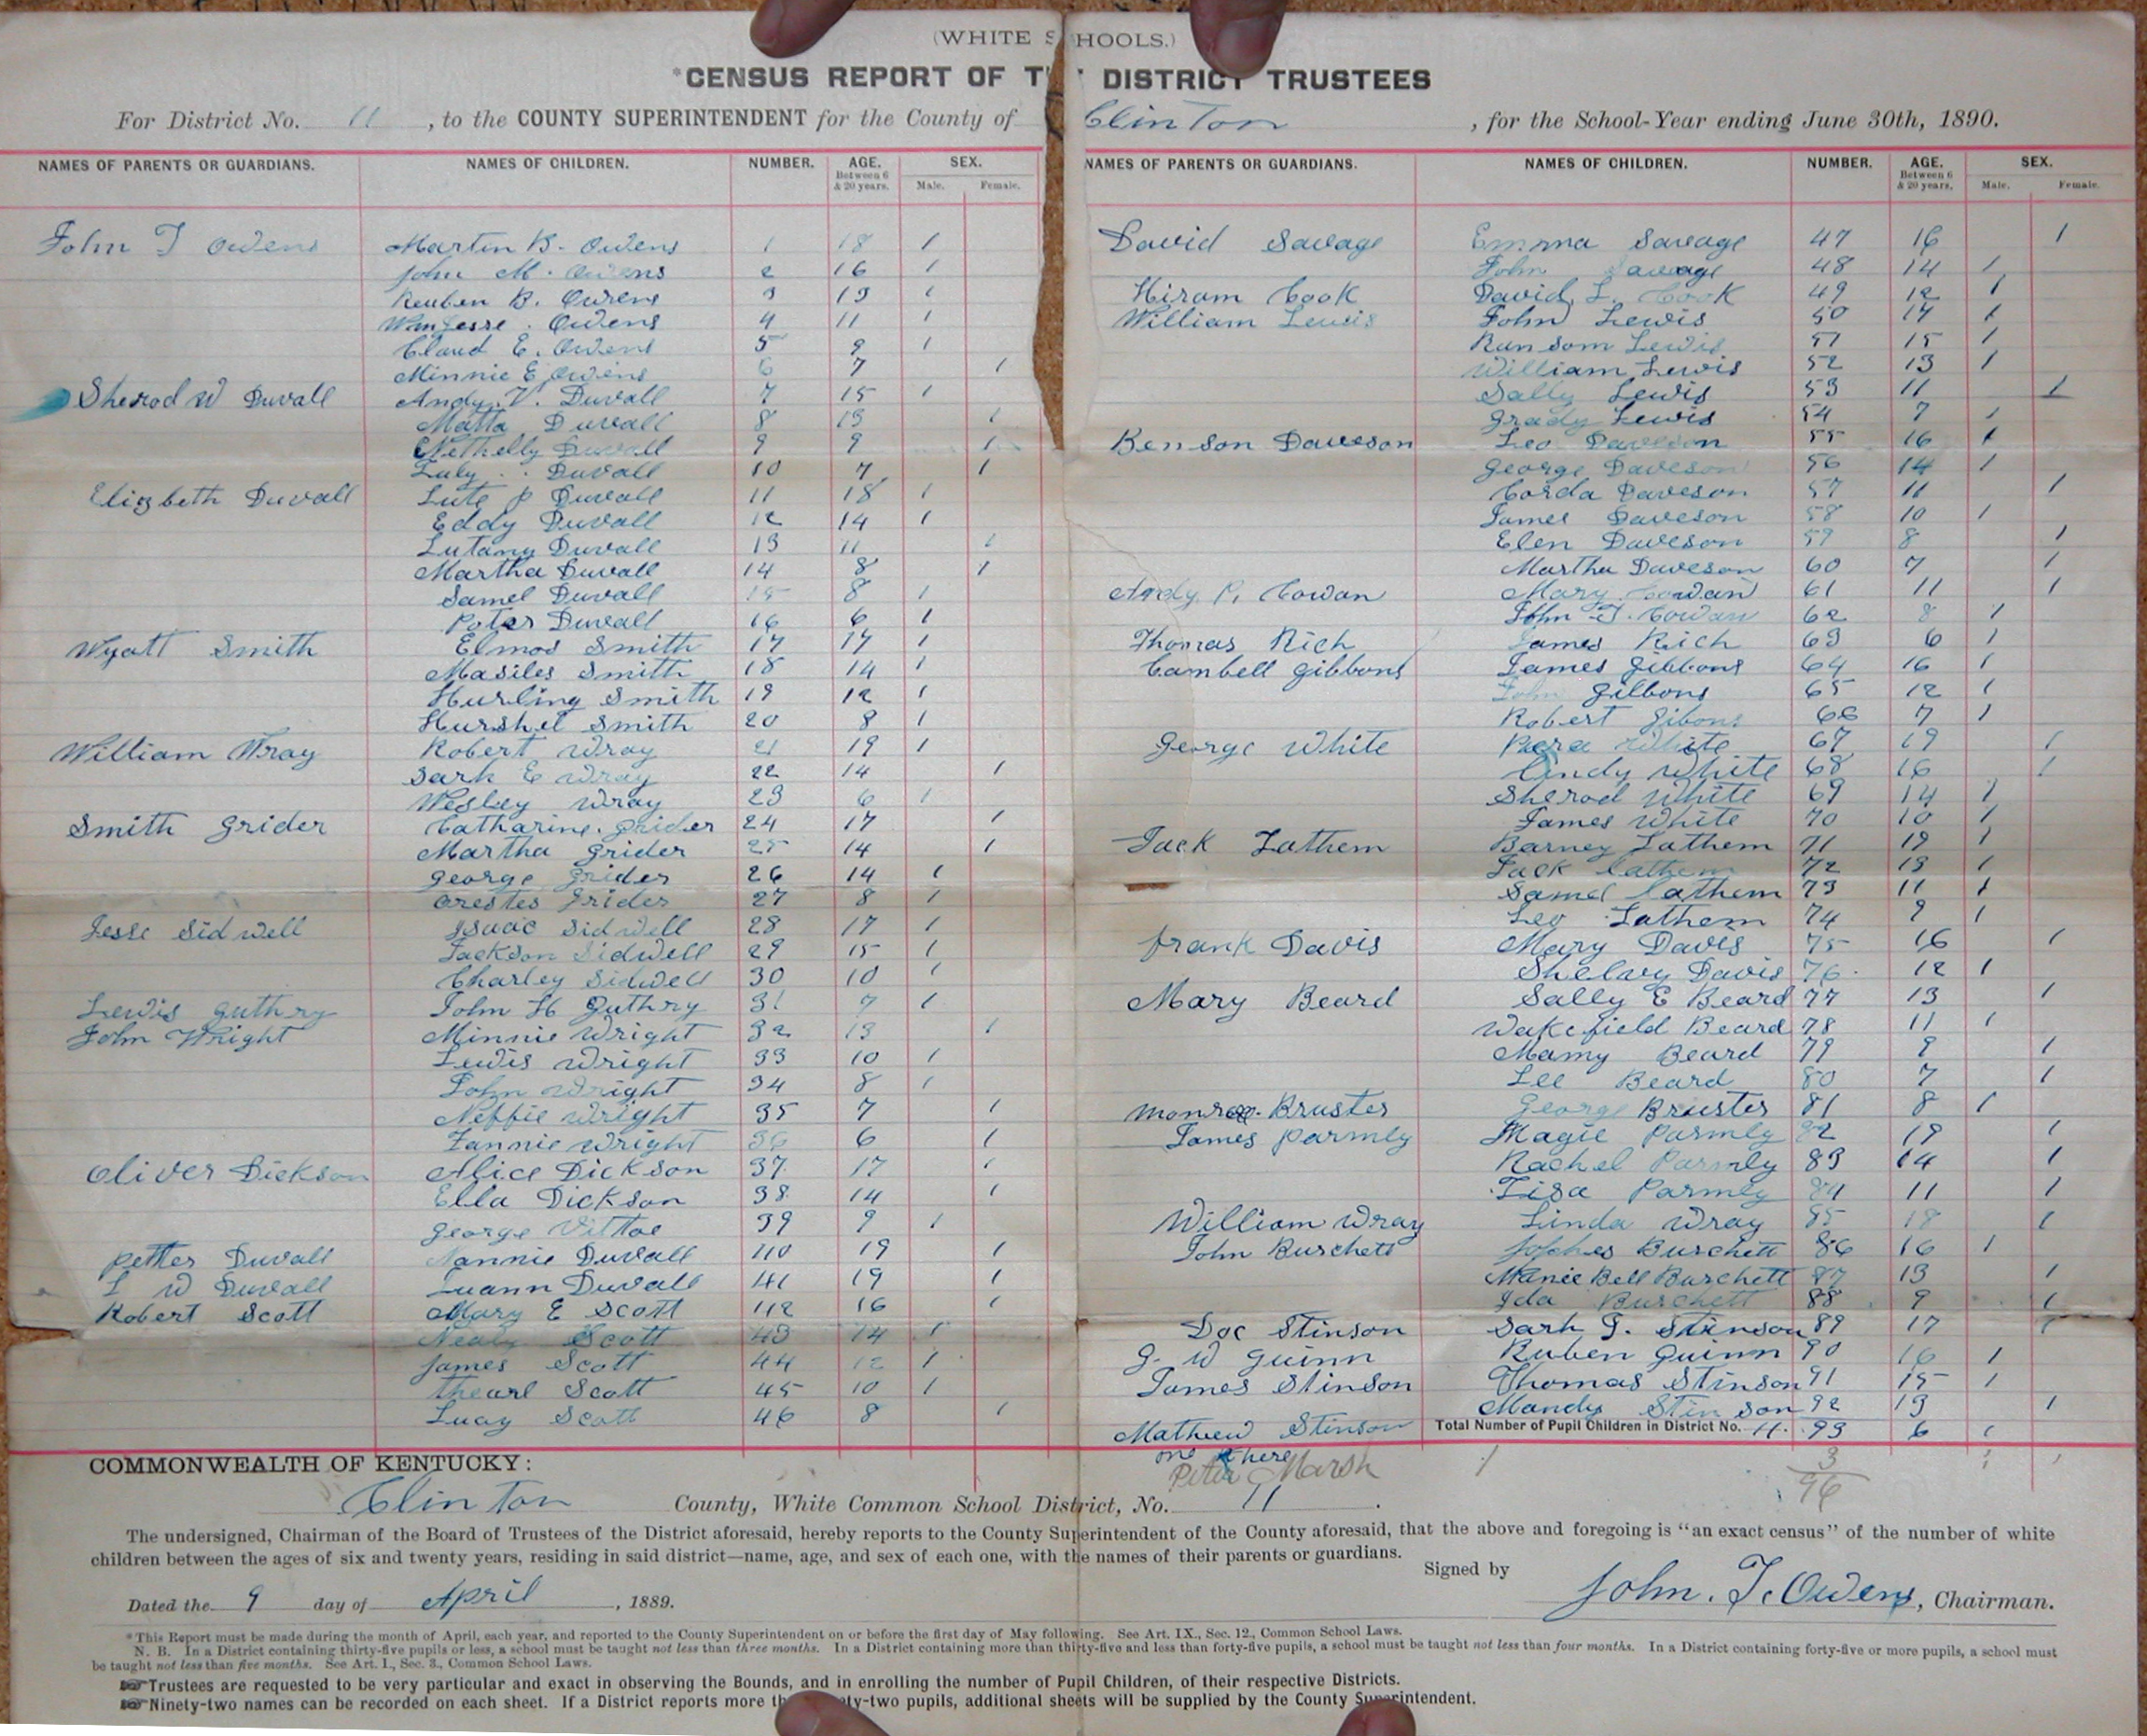 (WHITE S HOOLS.)
*CENSUS REPORT OF T DISTRICT TRUSTEES
For District No. 11, to the COUNTY SUPERINTENDENT for the County of Clinton, for the School-Year ending June 30th, 1890.
NAMES OF PARENTS OR GUARDIANS. NAMES OF CHILDREN. NUMBER. AGE. Between 6 & 20 years. SEX. Male. Female.
John T Owens Martin B. Owens 1 18 1
John M. Owens 2 16 1
Reuben B. Owens 3 13 1
Wm Jesse. Owens 4 11 1
Claud E. Owens 5 9 1
Minnie E Owens 6 7 1
Sherod W Duvall Andy. V. Duvall 7 15 1
Matta Duvall 8 13 1
Nethelly Duvall 9 9 1
Luly Duvall 10 7 1
Elizbeth Duvall Lute P Duvall 11 18 1
Eddy Duvall 12 14 1
Lutany Duvall 13 11 1
Martha Duvall 14 8 1
Samel Duvall 15 8 1
Peter Duvall 16 6 1
Wyatt Smith Elmos Smith 17 17 1
Masiles Smith 18 14 1
Hurling Smith 19 12 1
Hurshel Smith 20 8 1
William Wray Robert Wray 21 19 1
Sarh E Wray 22 14 1
Wesley Wray 23 6 1
Smith Grider Catharine. Grider 24 17 1
Martha Grider 25 14 1
George Grider 26 14 1
Orestes Grider 27 8 1
Jesse Sidwell Isaac Sidwell 28 17 1
Jackson Sidwell 29 15 1
Charley Sidwell 30 10 1
Lewis Guthry John H Guthry 31 7 1
John Wright Minnie Wright 32 13 1
Lewis Wright 33 10 1
John Wright 34 8 1
Neffie Wright 35 7 1
Fannie Wright 36 6 1
Oliver Dickson Alice Dickson 37 17 1
Ella Dickson 38 14 1
George Vittoe 39 9 1
Petter Duvall Nannie Duvall 40 19 1
L W Duvall Luann Duvall 41 19 1
Robert Scott Mary E Scott 42 16 1
Nealy Scott 43 14 1
James Scott 44 12 1
Thearl Scott 45 10 1
Lucy Scott 46 8 1
NAMES OF PARENTS OR GUARDIANS. NAMES OF CHILDREN. NUMBER. AGE. Between 6 & 20 years. SEX. Male. Female.
David Savage Emma Savage 47 16 1
John Savage 48 14 1
Hiram Cook David. L. Cook 49 12 1
William Lewis John Lewis 50 17 1
Ransom Lewis 51 15 1
William Lewis 52 13 1
Sally Lewis 53 11 1
Grady Lewis 54 7 1
Benson Daveson Leo Daveson 55 16 1
George Daveson 56 14 1
Corda Daveson 57 11 1
James Daveson 58 10 1
Elen Daveson 59 8 1
Martha Daveson 60 7 1
Andy. P. Cowan Mary Cowan 61 11 1
John T. Cowan 62 8 1
Thomas Rich James Rich 63 6 1
Cambell Gibbons James Gibbons 64 16 1
John Gibbons 65 12 1
Robert Gibons 66 7 1
George White White 67 19 1
Cindy White 68 16 1
Sherod White 69 14 1
James White 70 10 1
Jack Lathem Barney Lathem 71 19 1
Jack Lathem 72 13 1
Samel Lathem 73 11 1
Leo Lathem 74 9 1
Frank Davis Mary Daves 75 16 1
Shelvy Davis 76. 12 1
Mary Beard Sally E Beard 77 13 1
Wakefield Beard 78 11 1
Mamy Beard 79 9 1
Lee Beard 80 7 1
Monroe. Bruster George Bruster 81 8 1
James Parmly Magie Parmly 82 19 1
Rachel Parmly 83 14 1
Lisa Parmly 84 11 1
William Wray Linda Wray 85 18 1
John Burchett Burchett 86 16 1
Manie Bell Burchett 87 13 1
Ida Burchett 88 9 1
Doc Stinson Sarh J. Stinson 89 17 1
G. W Guinn Ruben Guinn 90 16 1
James Stinson Thomas Stinson 91 15 1
Mandy Stinson 92 13 1
Mathew Stinson Total Number of Pupil Children in District No. 11. 93 6 1
one here 3
Peter Marsh 1 96
COMMONWEALTH OF KENTUCKY:
Clinton County, White Common School District, No. 11.
The undersigned, Chairman of the Board of Trustees of the District aforesaid, hereby reports to the County Superintendent of the County aforesaid, that the above and foregoing is "an exact census" of the number of white
children between the ages of six and twenty years, residing in said district—name, age, and sex of each one, with the names of their parents or guardians.
Signed by John. T. Owens, Chairman.
Dated the 9 day of April, 1889.
*This Report must be made during the month of April, each year, and reported to the County Superintendent on or before the first day of May following. See Art. IX., Sec. 12., Common School Laws.
N. B. In a District containing thirty-five pupils or less, a school must be taught not less than three months. In a District containing more than thirty-five and less than forty-five pupils, a school must be taught not less than four months. In a District containing forty-five or more pupils, a school must
be taught not less than five months. See Art. I., Sec. 3., Common School Laws.
Trustees are requested to be very particular and exact in observing the Bounds, and in enrolling the number of Pupil Children, of their respective Districts.
Ninety-two names can be recorded on each sheet. If a District reports more th ty-two pupils, additional sheets will be supplied by the County Superintendent.